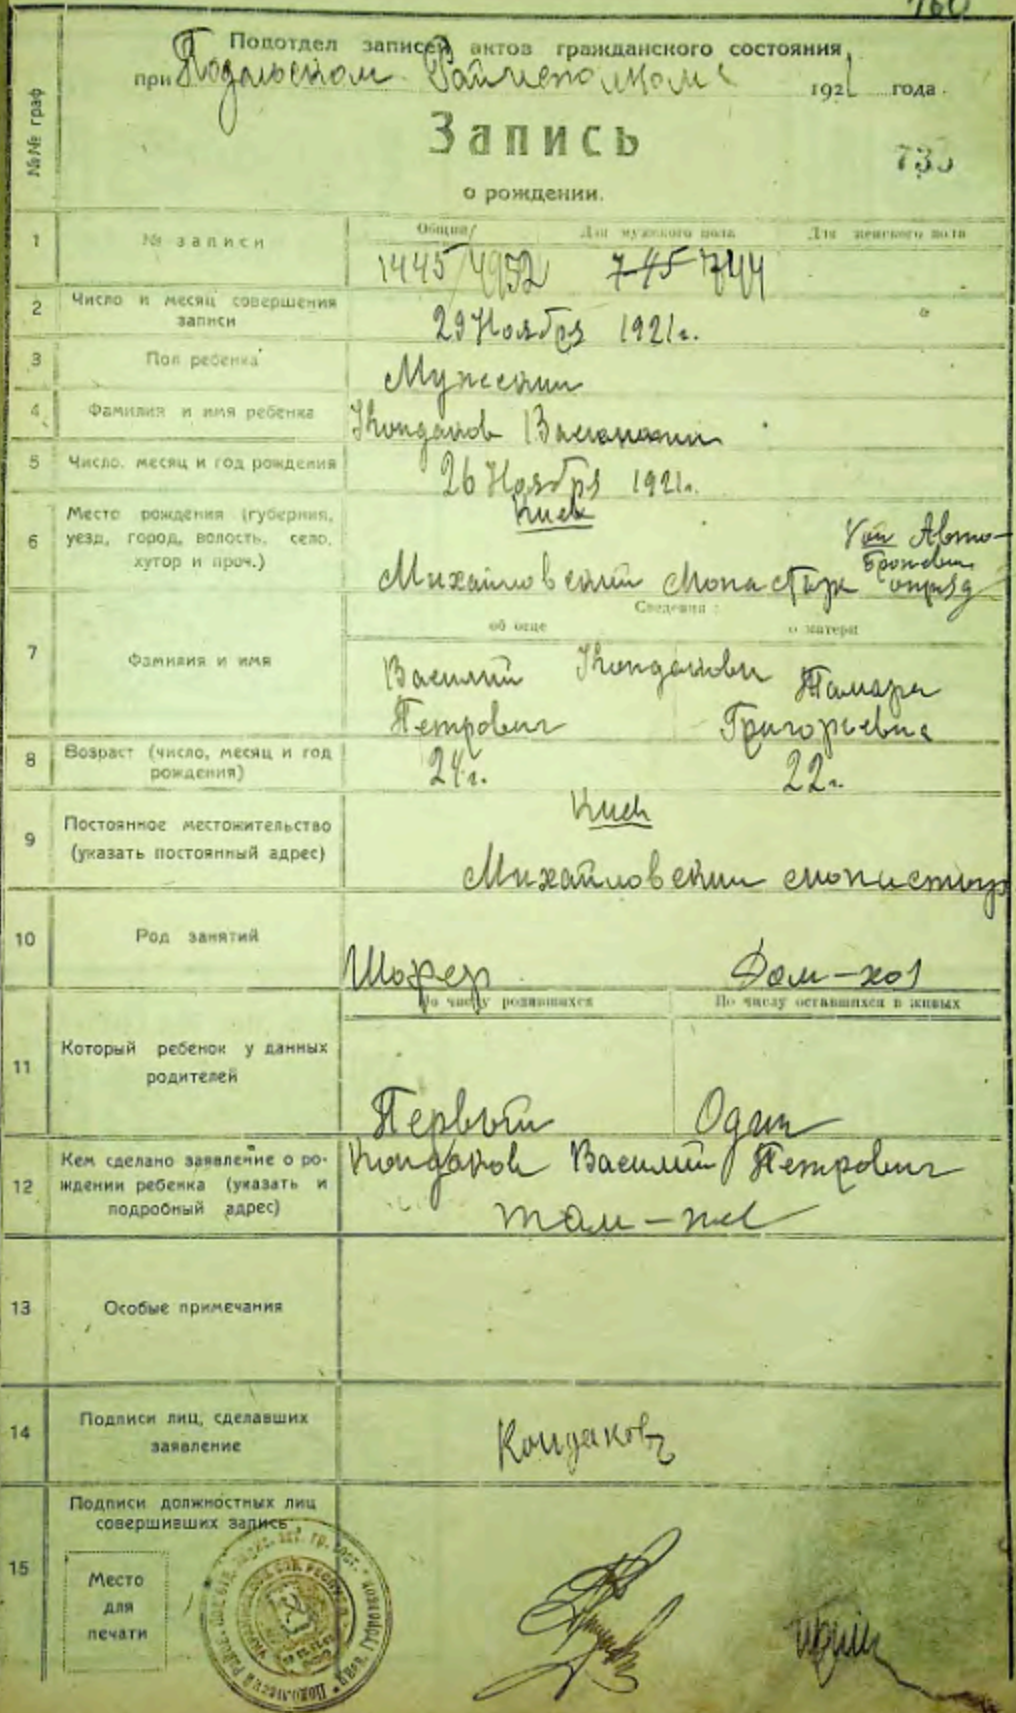 760
Подотдел записей актов гражданского состояния
при Подольском Райисполкоме 1921 года.
Запись
735
о рождении.
№№ граф
1 № записи
Общий Для мужского пола Для женского пола
1445/4952 745 744
2 Число и месяц совершения записи
29 Ноября 1921г.
3 Пол ребенка
Мужеский
4 Фамилия и имя ребенка
Кондаков
5 Число, месяц и год рождения
26 Ноября 1921г.
6 Место рождения (губерния,
уезд, город, волость, село,
хутор и проч.)
Киев
Михайловский Монастырь
Авто-
Броневой
отряд
7 Фамилия и имя
Сведения:
об отце о матери
Василий Кондаковы Тамара
Петрович Григорьевна
8 Возраст (число, месяц и год
рождения)
24г. 22г.
9 Постоянное местожительство
(указать постоянный адрес)
Киев
Михайловский монастырь
10 Род занятий
Шофер Дом-хоз
11 Который ребенок у данных
родителей
По числу родившихся По числу оставшихся в живых
Первый Один
12 Кем сделано заявление о ро-
ждении ребенка (указать и
подробный адрес)
Кондаков Василий Петрович
там-же
13 Особые примечания
14 Подписи лиц, сделавших
заявление
Кондаковъ
15 Подписи должностных лиц
совершивших запись
Место
для
печати